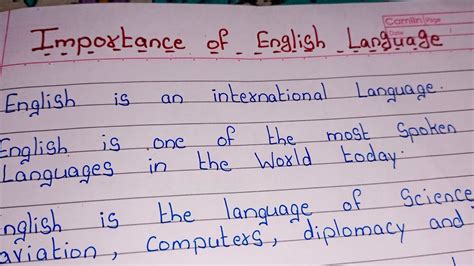 Camlin Page
Date
Importance of English Language
English is an international Language.
English is one of the most Spoken
Languages in the World today.
English is the language of Science,
aviation, computers, diplomacy and